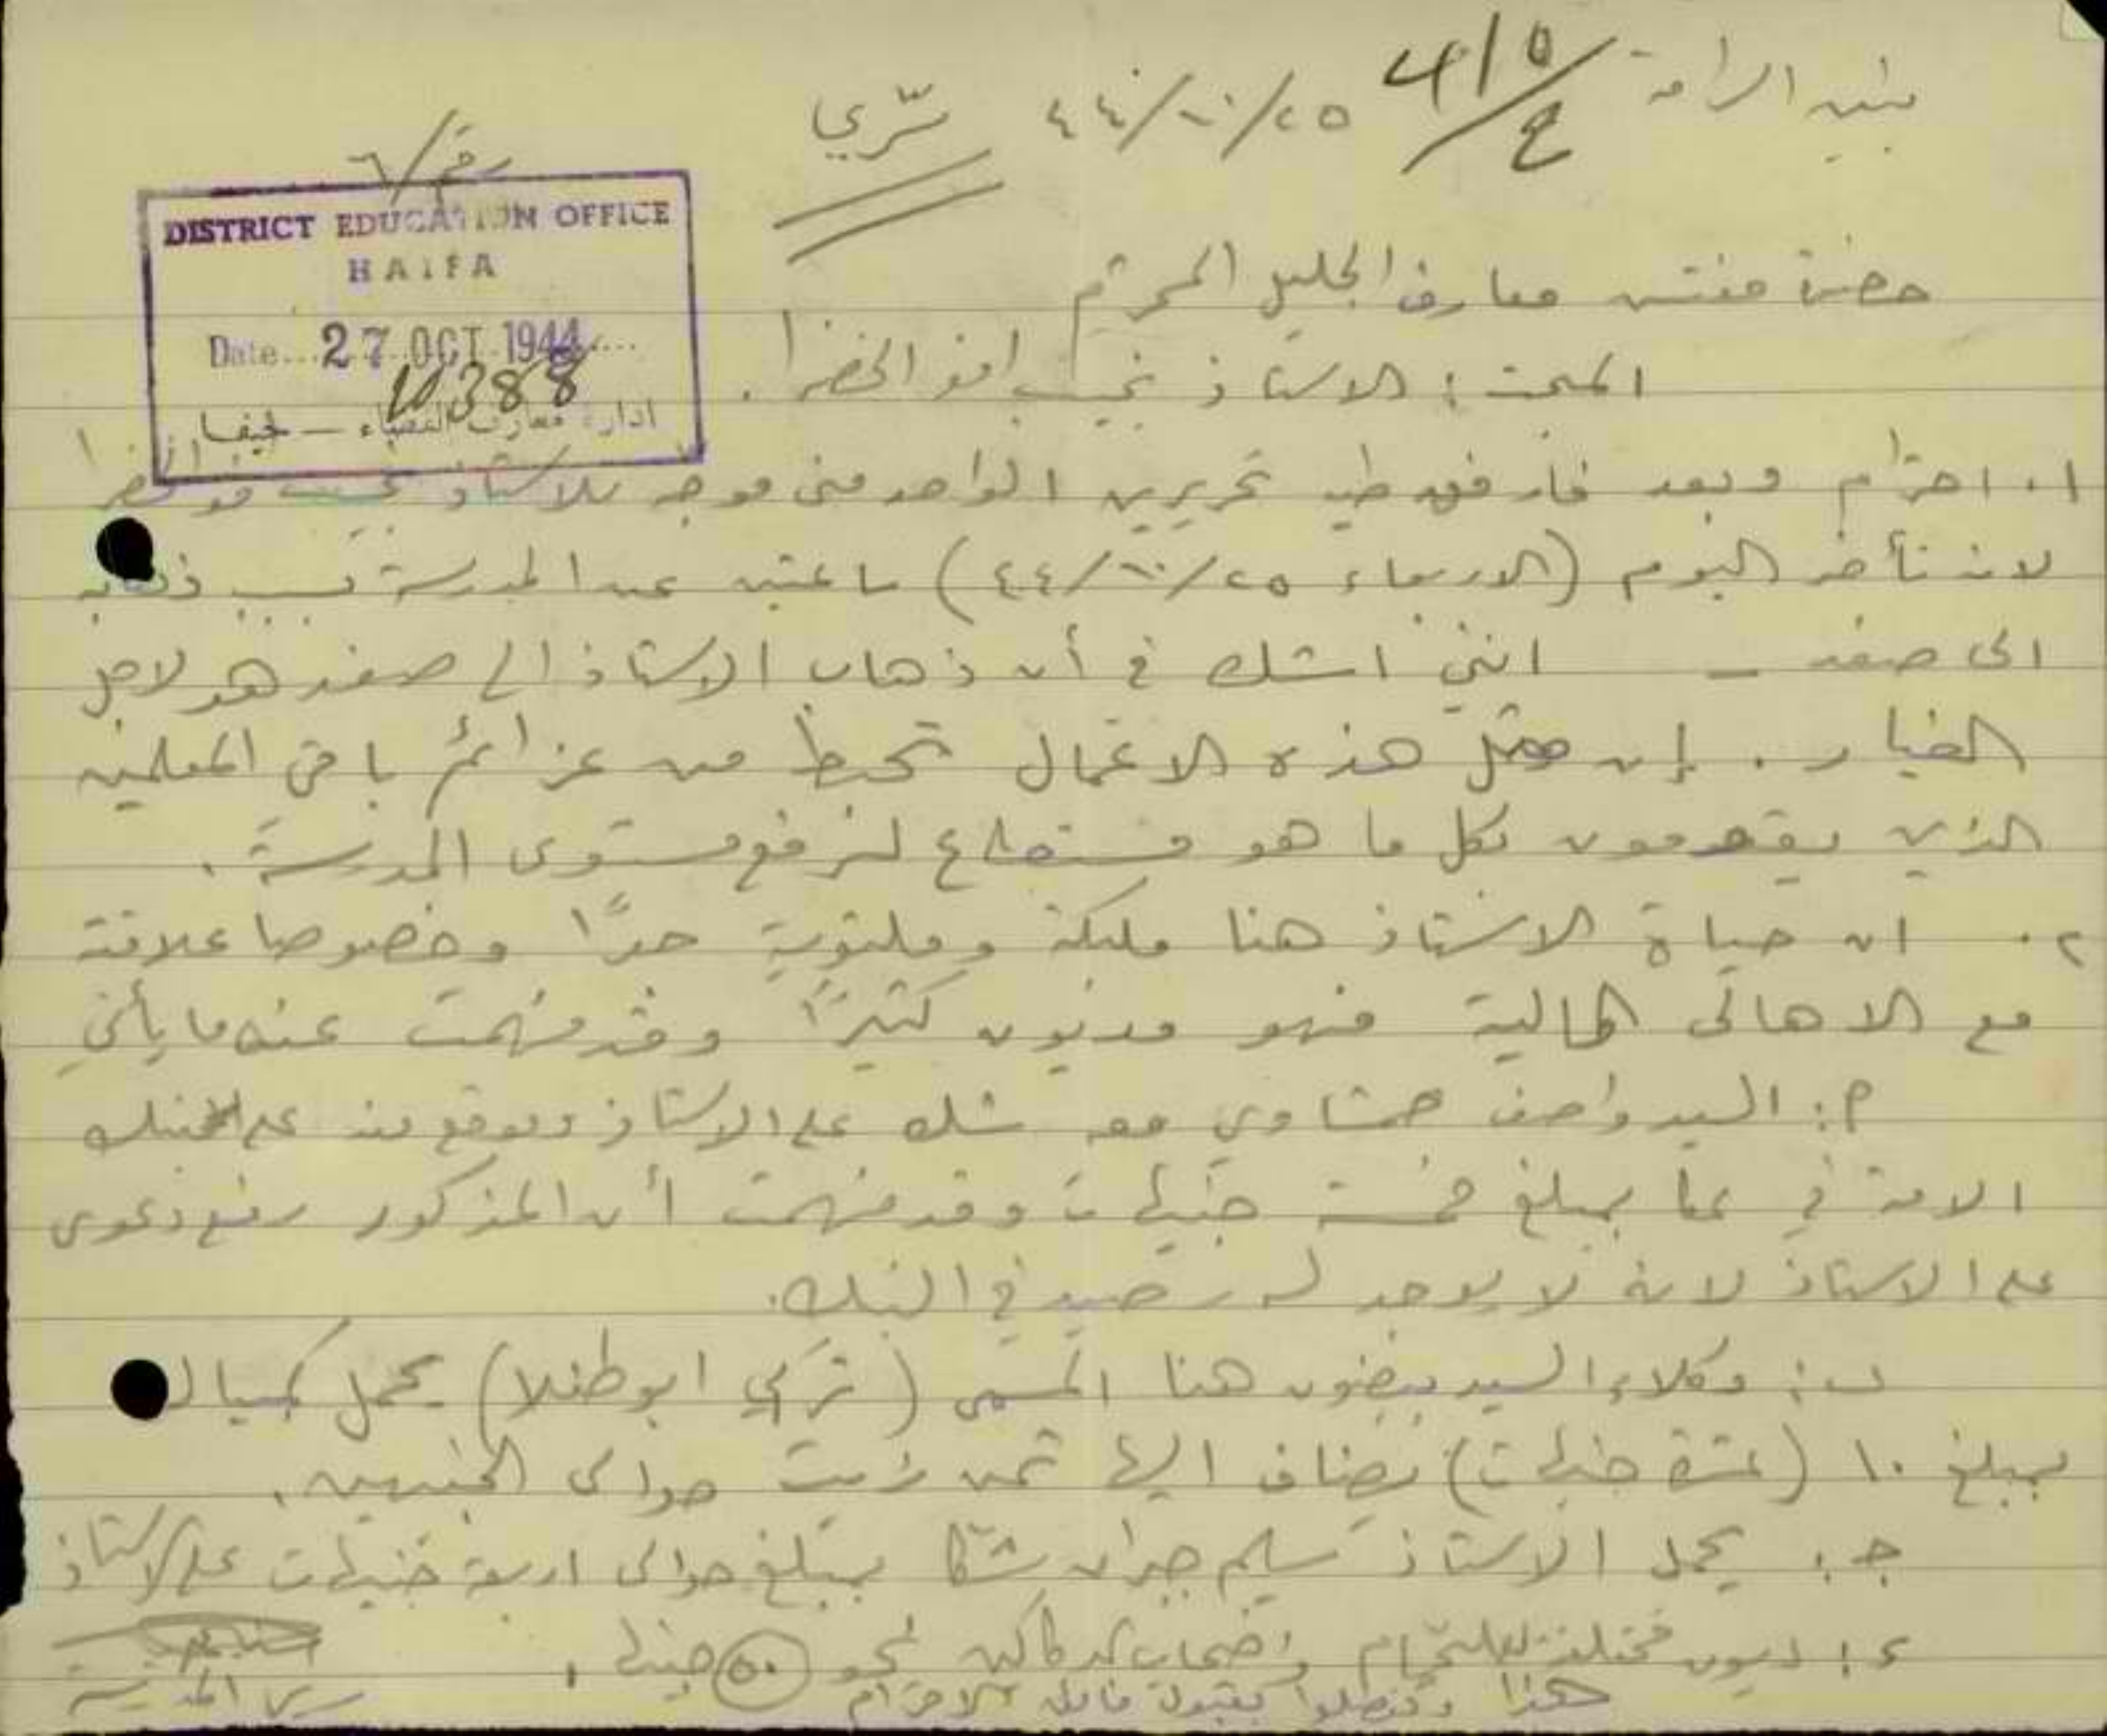 بنين الرامة ٤٤/١٠/٢٥ سرّي
رقم/٦
DISTRICT EDUCATION OFFICE
HAIFA
Date... 27 OCT 1944
10388
ادارة معارف القضاء – حيفا
حضرة مفتش معارف الجليل المحترم
المبحث : الاستاذ نجيب الخضرا .
١. احترام وبعد فارفق طيه تحريرين الواحد مني موجه للاستاذ نجيب الخضرا
لانه تأخر اليوم (الاربعاء ٤٤/١٠/٢٥) ساعتين عن المدرسة بسبب ذهابه
الى صفد – انني اشك في أن ذهاب الاستاذ الى صفد هو لاجل
الخيار . إن مثل هذه الاعمال تحبط من عزائم باقي المعلمين
الذين يقومون بكل ما هو مستطاع لرفع مستوى المدرسة .
٢. ان حياة الاستاذ هنا ملبكة وملتوية جدًا وخصوصا علاقته
مع الاهالي المالية فهو مديون كثيرًا وقد فهمت عنه ما يأتي
م: السيد واصف معه شك على الاستاذ وموقع منه على البنك
الامة في عكا بمبلغ خمسة جنيهات وقد فهمت أن المذكور رفع دعوى
على الاستاذ لانه لا يوجد له رصيد في البنك.
ب: وكلاء السيد بيضون هنا المسمى (تركي ابو طفلا) يحمل كمبيالة
بمبلغ ١٠ (عشرة جنيهات) يضاف اليها ثمن زيت حوالى الجنيهين.
جـ: يحمل الاستاذ سليم جبران شكا بمبلغ حوالى اربعة جنيهات على الاستاذ
ء: ديون مختلفة للحام واصحاب الدكاكين نحو ٥٠ جنيها .
هذا وتفضلوا بقبول فائق الاحترام
رئيس المدرسة